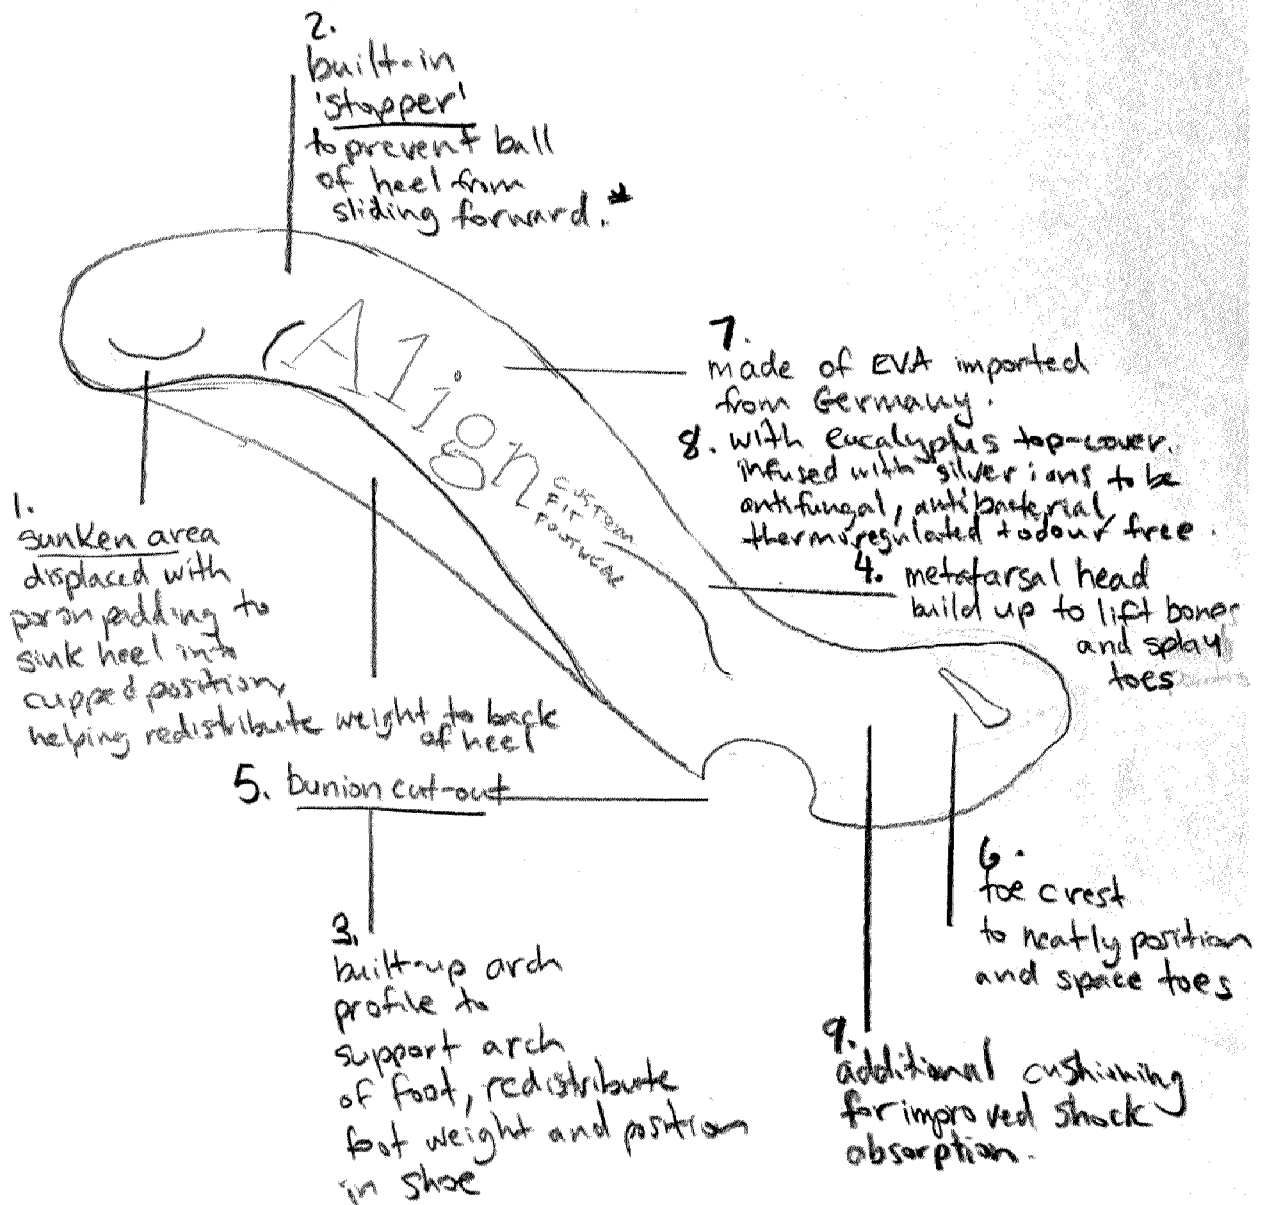 2.
built-in
'stopper'
to prevent ball
of heel from
sliding forward.*
Align
CUSTOM
FIT
FOOTWEAR
7.
made of EVA imported
from Germany.
8. with eucalyptus top-cover.
infused with silver ions to be
antifungal, antibacterial,
thermoregulated + odour free.
4. metatarsal head
build up to lift bones
and splay
toes
1.
sunken area
displaced with
poron padding to
sink heel into
cupped position,
helping redistribute weight to back
of heel
5. bunion cut-out
3.
built-up arch
profile to
support arch
of foot, redistribute
foot weight and position
in shoe
6.
toe crest
to neatly position
and space toes
9.
additional cushioning
for improved shock
absorption.